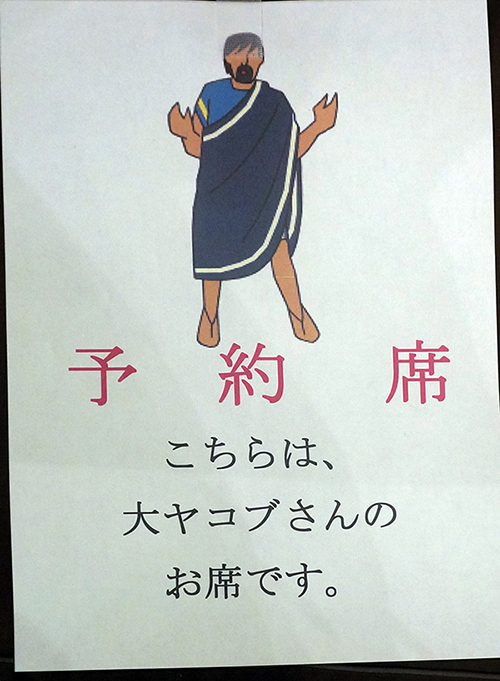 予約席
こちらは、
大ヤコブさんの
お席です。